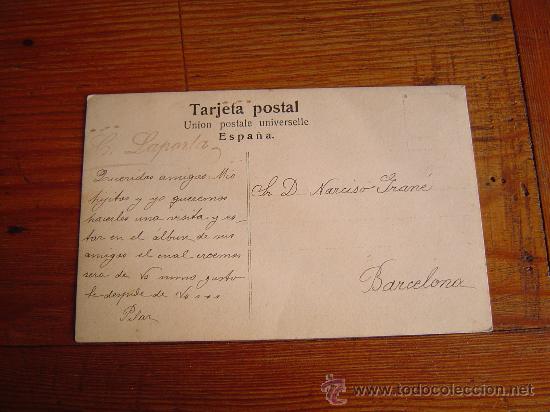 Tarjeta postal
Union postale universelle
España.
C. Laporta
Queridos amigos Mis
hijitos y yo queremos
hacerles una visita y es-
tar en el álbun de sus
amigos el cual creemos
sera de Vs mucho gusto
le despide de Vs...
Pilar
Sr. D. Narciso Grané
Barcelona
todocoleccion
www.todocoleccion.net